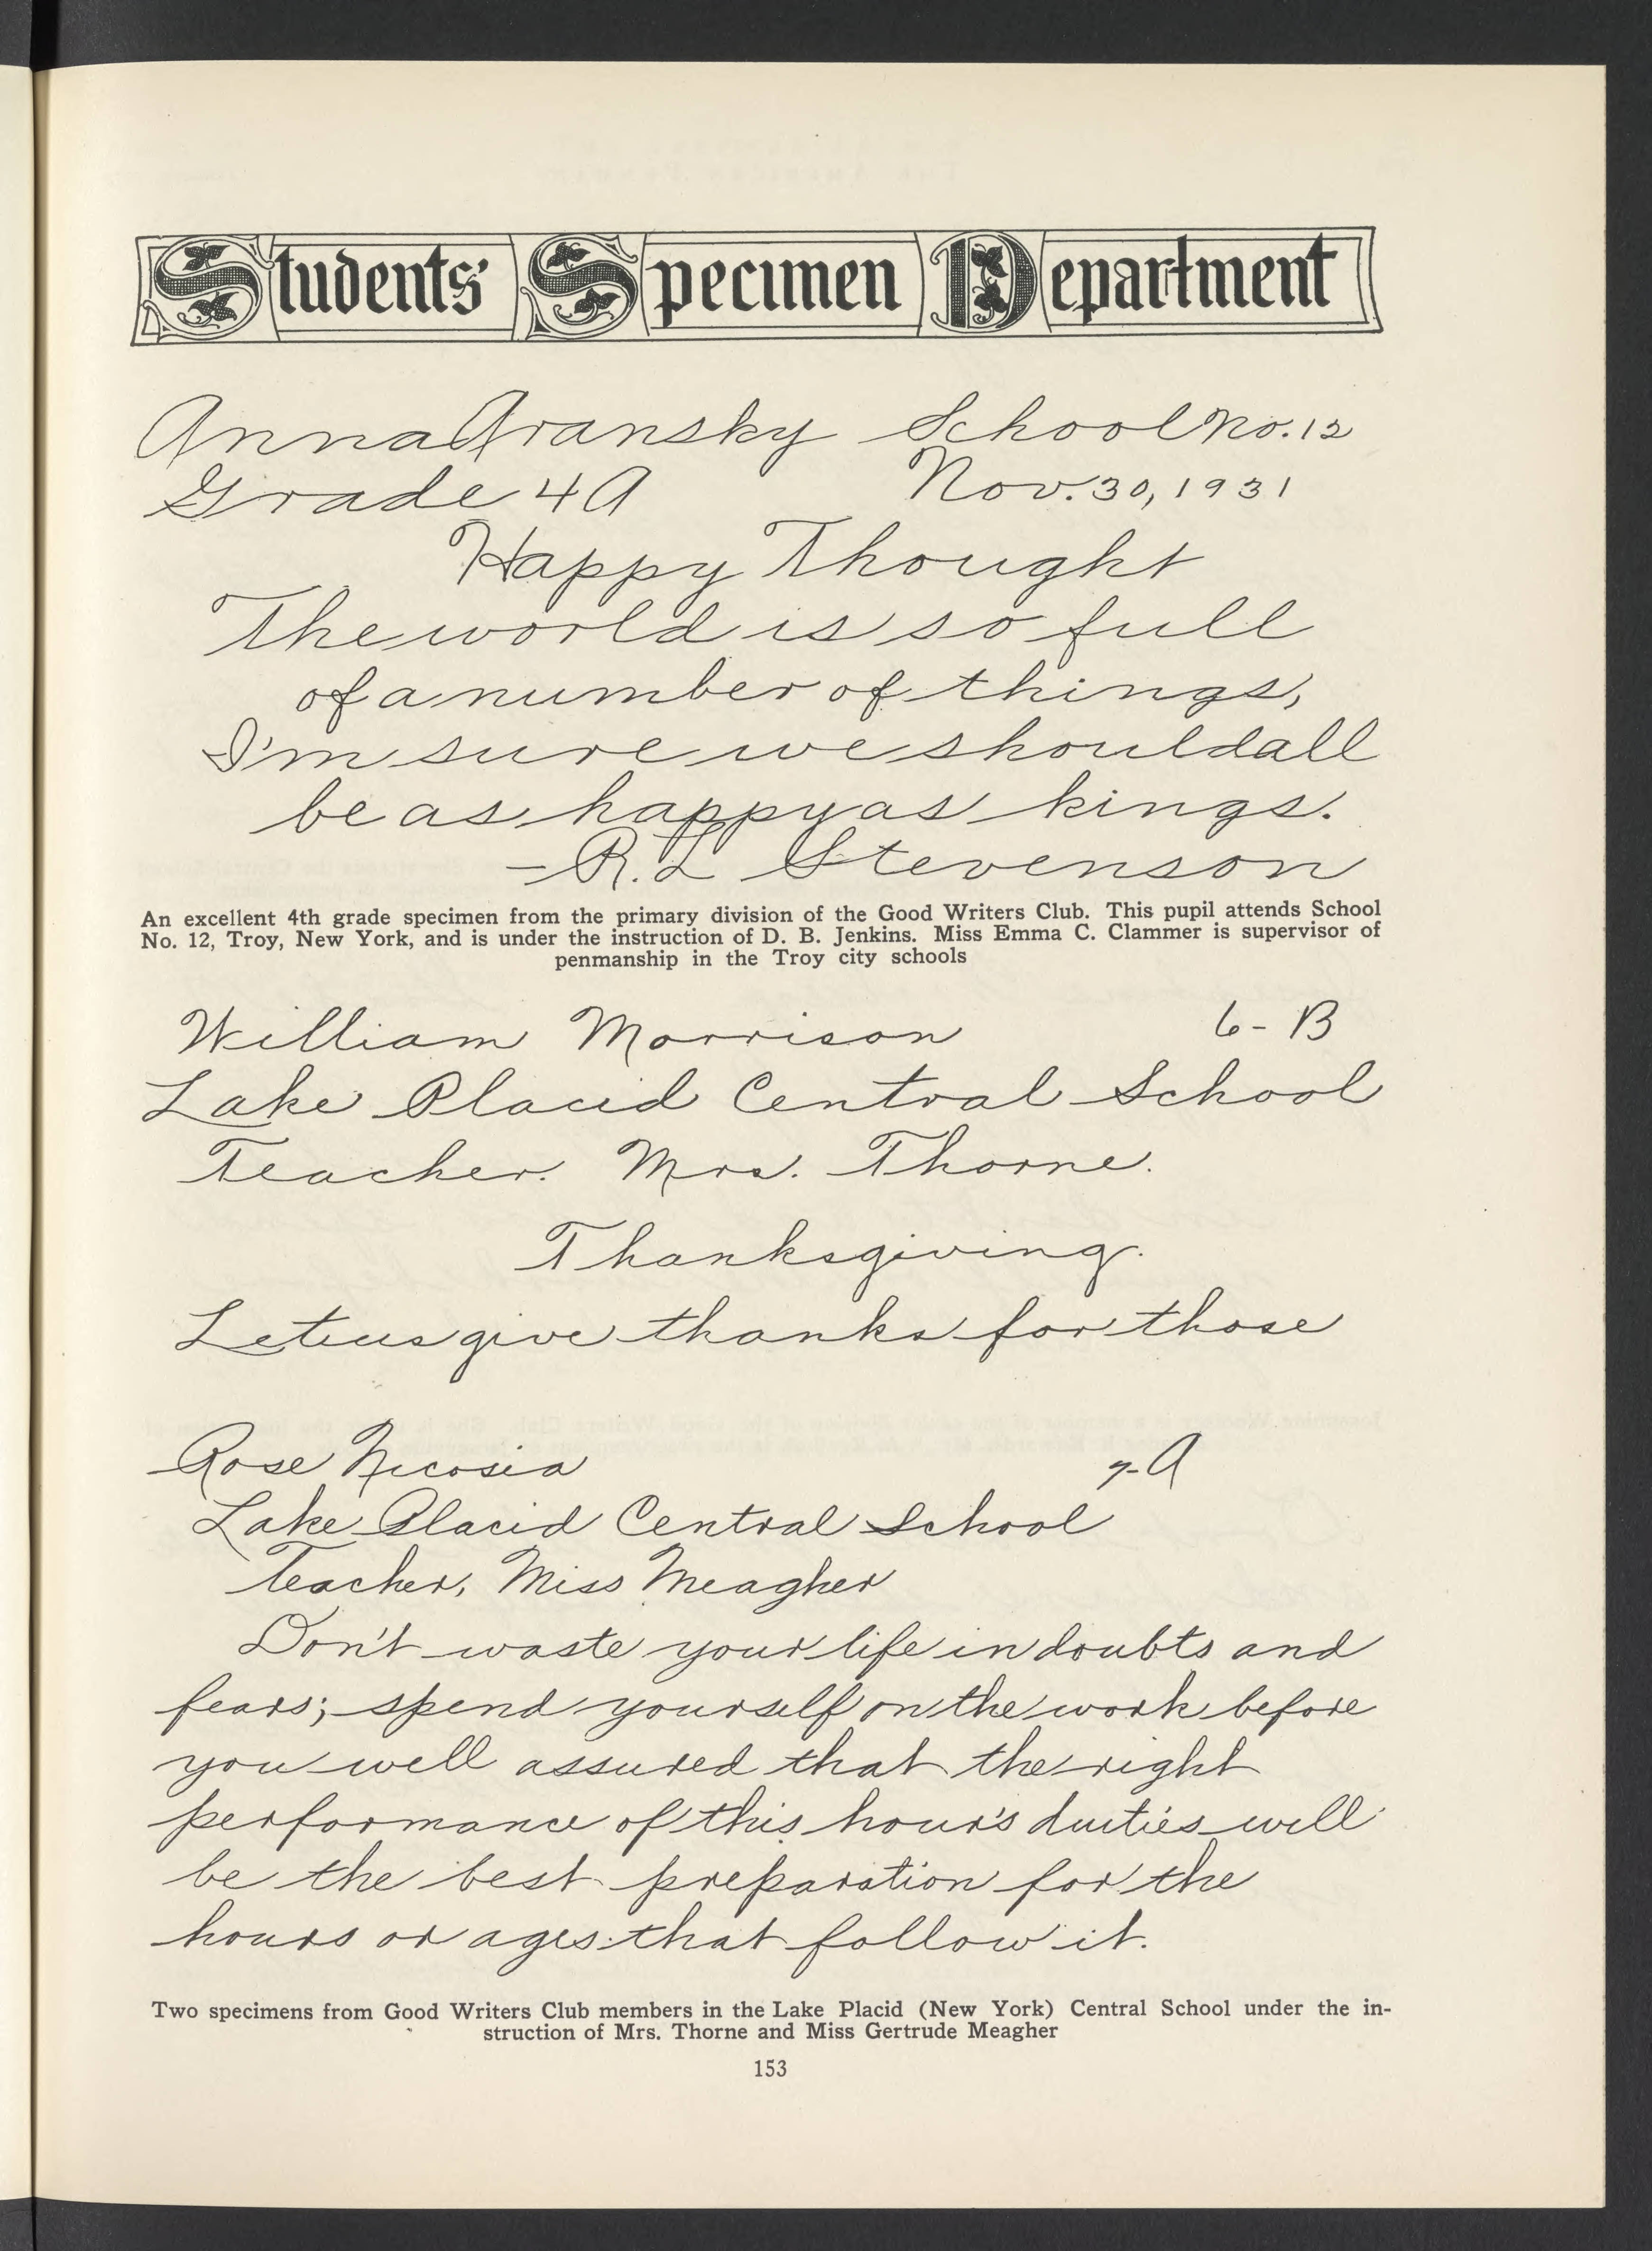 Students' Specimen Department
Anna Aransky School No. 12
Grade 4A Nov. 30, 1931
Happy Thought
The world is so full
of a number of things,
I'm sure we should all
be as happy as kings.
- R. L Stevenson
An excellent 4th grade specimen from the primary division of the Good Writers Club. This pupil attends School
No. 12, Troy, New York, and is under the instruction of D. B. Jenkins. Miss Emma C. Clammer is supervisor of
penmanship in the Troy city schools
William Morrison 6-B
Lake Placid Central School
Teacher. Mrs. Thorne.
Thanksgiving.
Let us give thanks for those
Rose Nicosia 7-A
Lake Placid Central School
Teacher, Miss Meagher
Don't waste your life in doubts and
fears; spend yourself on the work before
you well assured that the right
performance of this hour's duties will
be the best preparation for the
hours or ages that follow it.
Two specimens from Good Writers Club members in the Lake Placid (New York) Central School under the in-
struction of Mrs. Thorne and Miss Gertrude Meagher
153